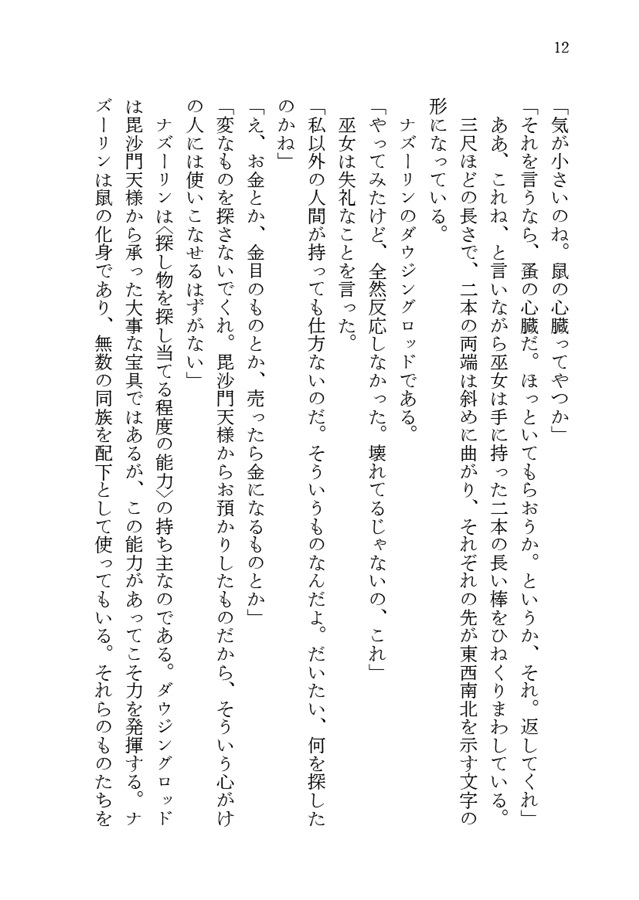 12
「気が小さいのね。鼠の心臓ってやつか」
「それを言うなら、蚤の心臓だ。ほっといてもらおうか。というか、それ。返してくれ」
ああ、これね、と言いながら巫女は手に持った二本の長い棒をひねくりまわしている。
三尺ほどの長さで、二本の両端は斜めに曲がり、それぞれの先が東西南北を示す文字の
形になっている。
ナズーリンのダウジングロッドである。
「やってみたけど、全然反応しなかった。壊れてるじゃないの、これ」
巫女は失礼なことを言った。
「私以外の人間が持っても仕方ないのだ。そういうものなんだよ。だいたい、何を探した
のかね」
「え、お金とか、金目のものとか、売ったら金になるものとか」
「変なものを探さないでくれ。毘沙門天様からお預かりしたものだから、そういう心がけ
の人には使いこなせるはずがない」
ナズーリンは〈探し物を探し当てる程度の能力〉の持ち主なのである。ダウジングロッド
は毘沙門天様から承った大事な宝具ではあるが、この能力があってこそ力を発揮する。ナ
ズーリンは鼠の化身であり、無数の同族を配下として使ってもいる。それらのものたちを